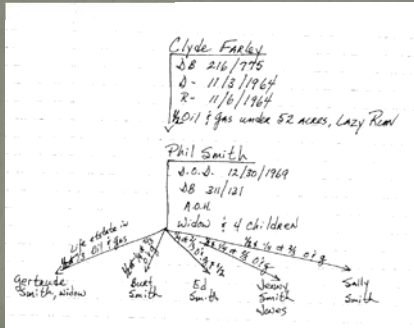 Clyde Farley
DB 216/775
D- 11/3/1964
R- 11/6/1964
½ Oil & gas under 52 acres, Lazy Run
Phil Smith
D.O.D. 12/30/1969
DB 311/131
A.O.H.
Widow & 4 children
Life estate in
Oil & gas
Gertrude
Smith, Widow
Burt
Smith
Ed
Smith
Jenny
Smith
Jones
Sally
Smith